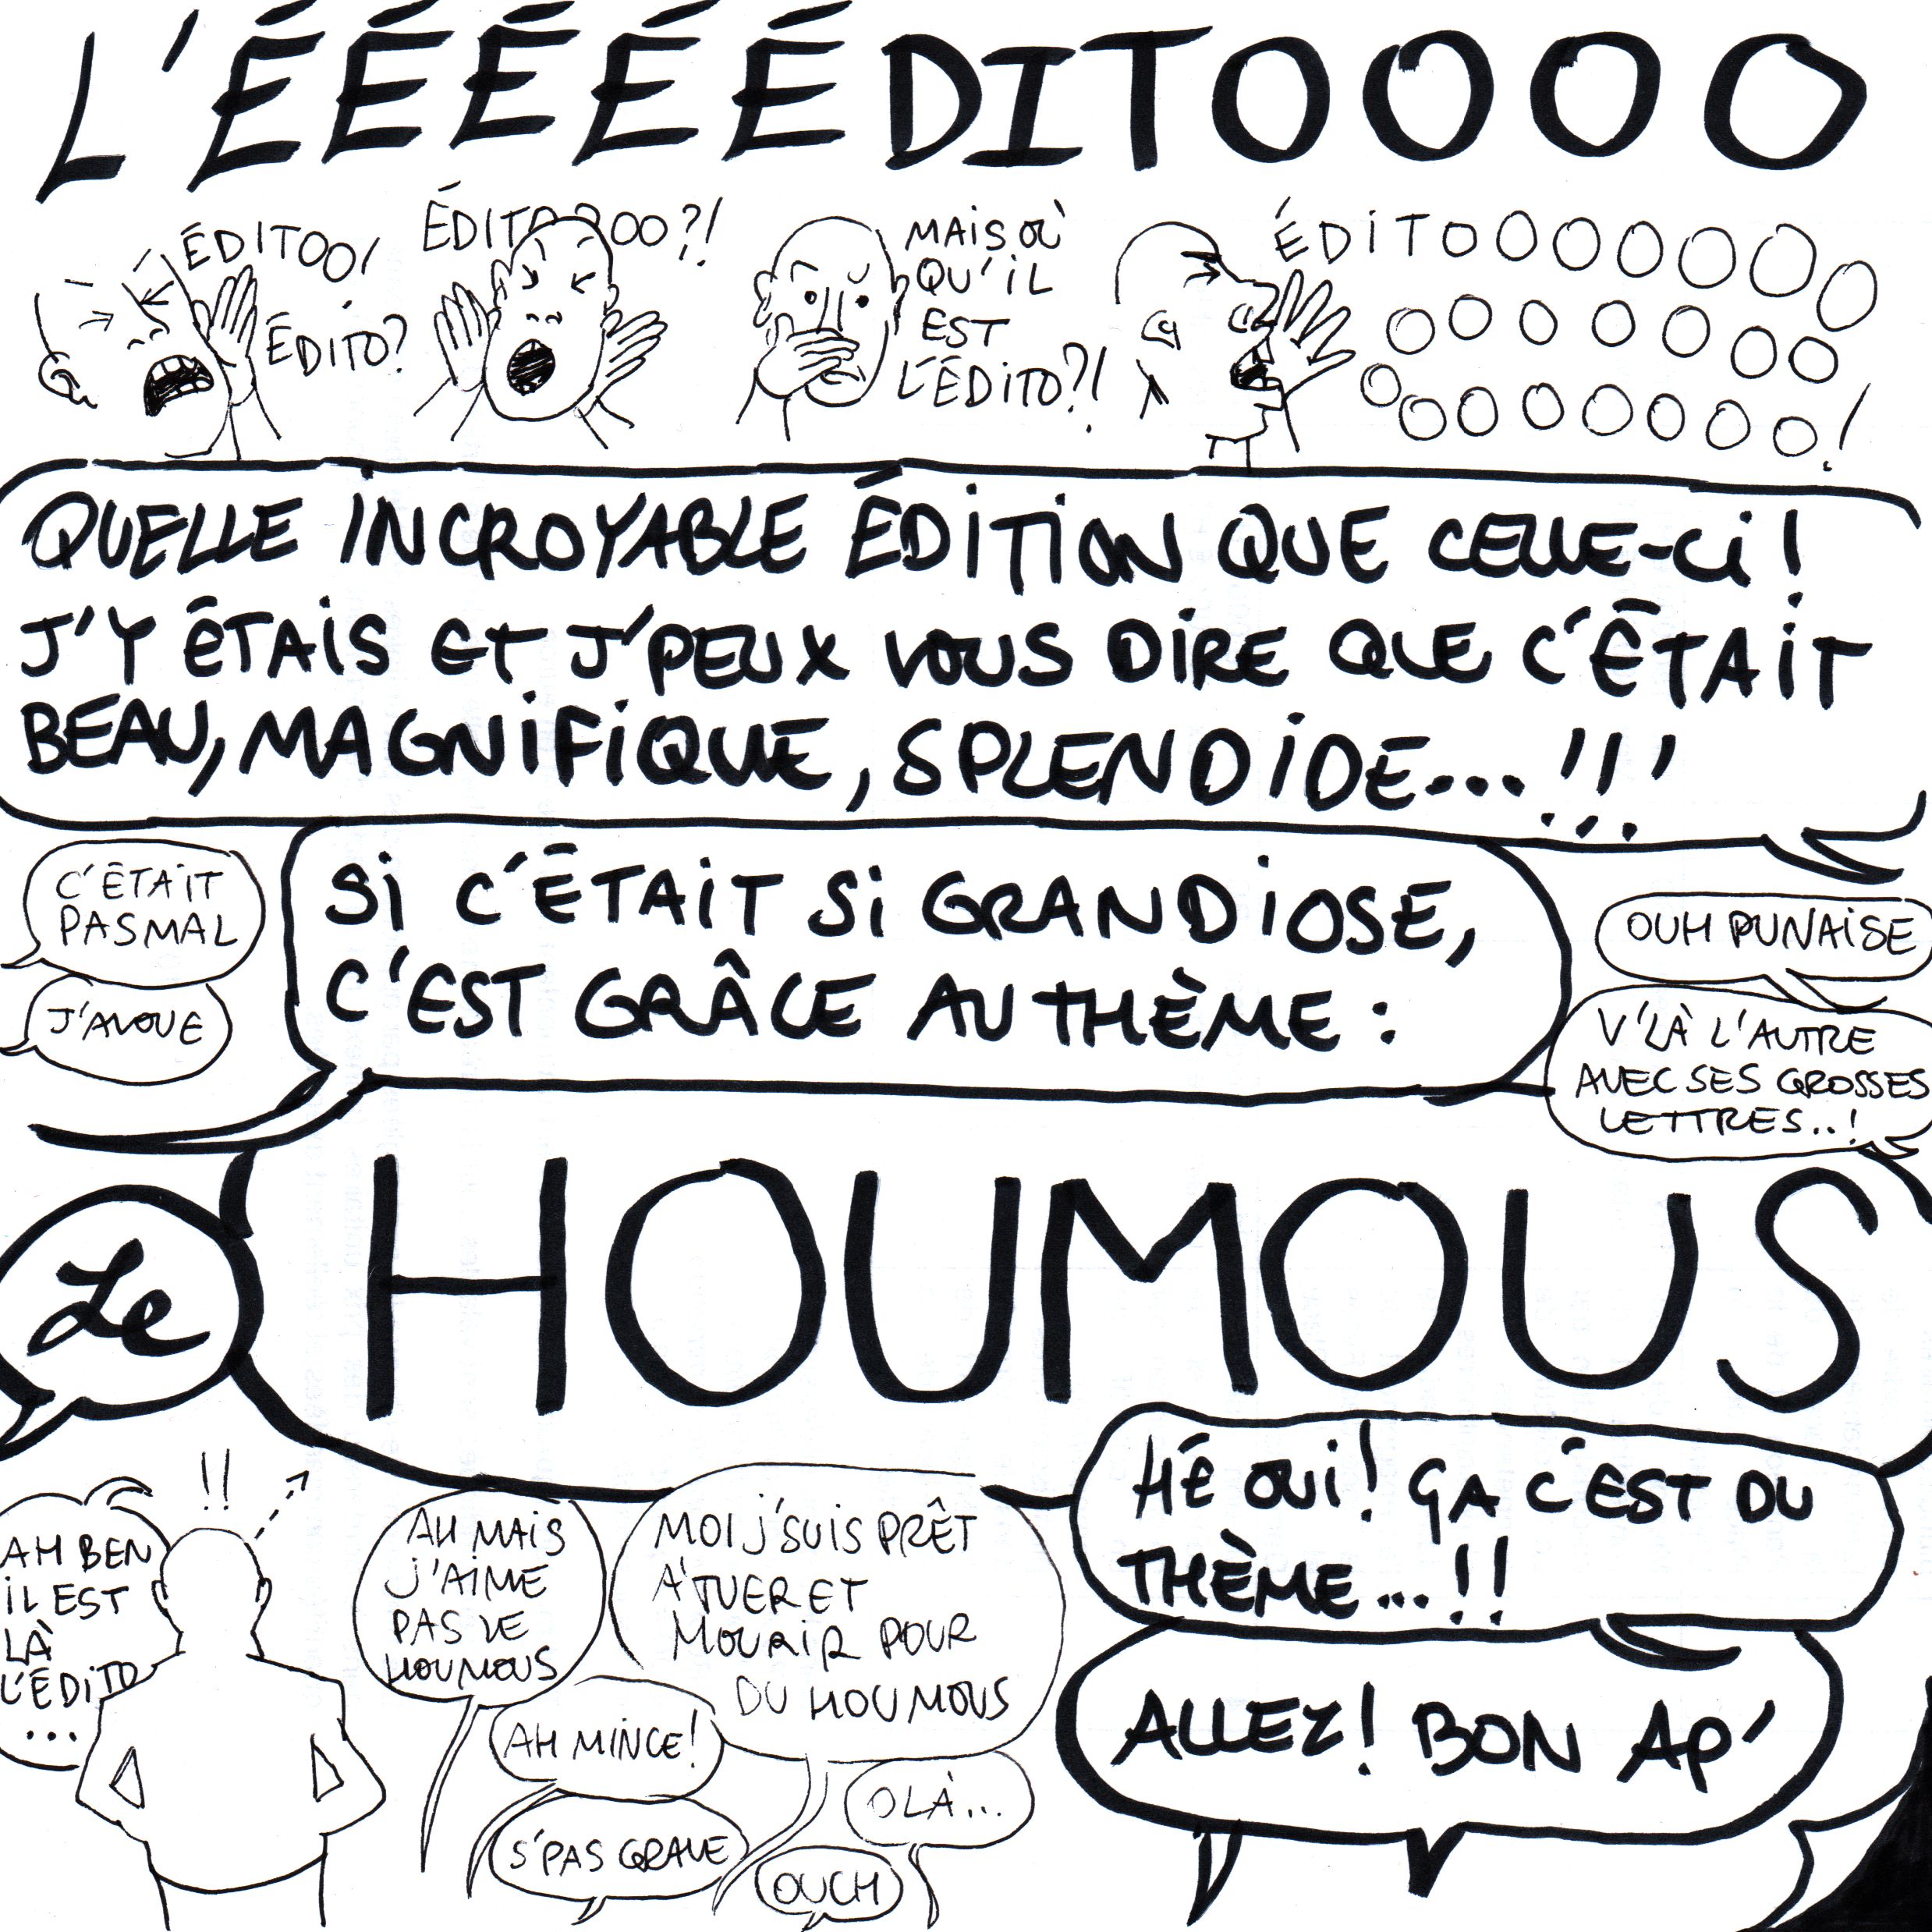 L'ÉÉÉÉÉDITOOOO
ÉDITOO!
ÉDITO?
ÉDITOOOO?!
MAIS OÙ
QU'IL
EST
L'ÉDITO?!
ÉDITOOOOOOO
OOOOOOO
OOOOOOOO!
QUELLE INCROYABLE ÉDITION QUE CELLE-CI!
J'Y ÉTAIS ET J'PEUX VOUS DIRE QUE C'ÉTAIT
BEAU, MAGNIFIQUE, SPLENDIDE...!!!
C'ÉTAIT
PAS MAL
J'AVOUE
SI C'ÉTAIT SI GRANDIOSE,
C'EST GRÂCE AU THÈME :
OUH PUNAISE
V'LÀ L'AUTRE
AVEC SES GROSSES
LETTRES..!
Le
HOUMOUS
HÉ OUI! ÇA C'EST DU
THÈME...!!
ALLEZ! BON AP'
!!
AH BEN
IL EST
LÀ
L'ÉDITO
...
AH MAIS
J'AIME
PAS LE
HOUMOUS
MOI J'SUIS PRÊT
À TUER ET
MOURIR POUR
DU HOUMOUS
AH MINCE!
S'PAS GRAVE
OLÀ...
OUCH